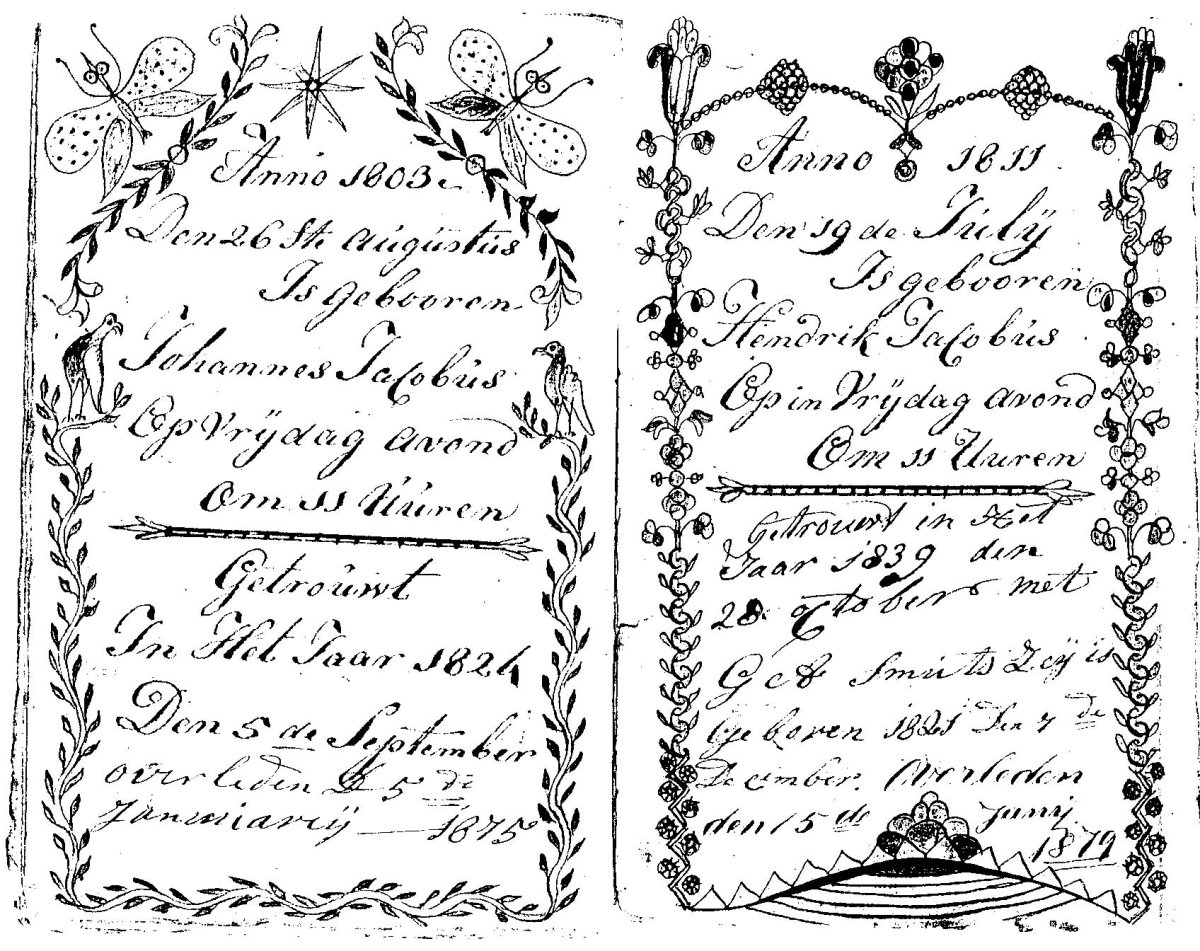 Anno 1803
Den 26 Ste augustus
Is gebooren
Johannes Jacobus
Op Vrÿdag avond
Om 11 Uuren
Getrouwt
In Het Jaar 1824
Den 5 de September
overleden 5 de
Januiarÿ — 1875
Anno 1811
Den 19 de Julÿ
Is gebooren
Hendrik Jacobus
Op in Vrÿdag avond
Om 11 Uuren
Getrouwt in Het
Jaar 1839 den
28 October met
Smuts Zÿ is
Geboren 1821 Den 7 de
December. Overleden
den 15 de Junÿ
1879